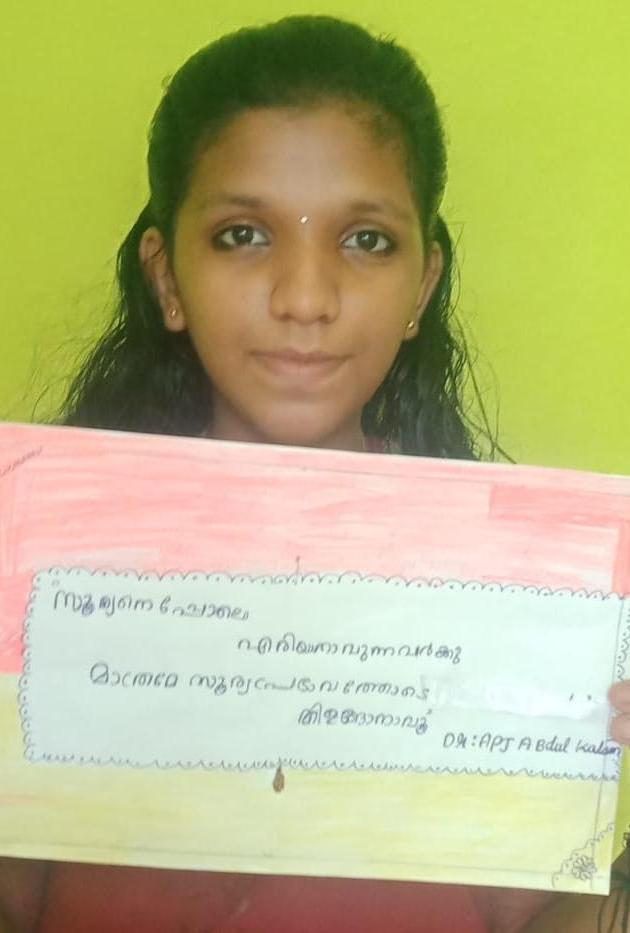 "സൂര്യനെ പോലെ
എരിയനാവുന്നവർക്കു
മാത്രമേ സൂര്യപ്രഭാവത്തോടെ
തിളങ്ങാനാവൂ"
DR: APJ ABdul Kalam